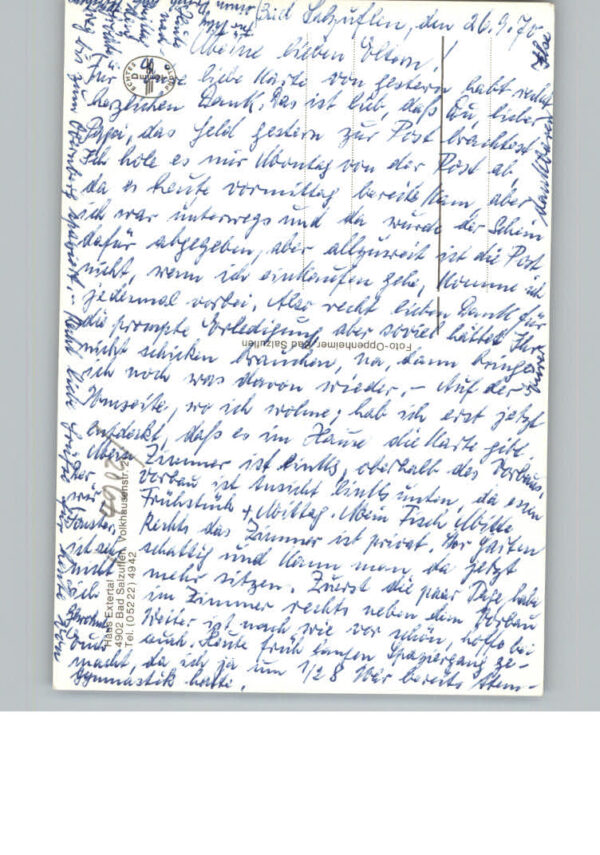 Bad Salzuflen, den 26.9.70
Meine lieben Eltern!
Für Eure liebe Karte von gestern habt recht
herzlichen Dank. Das ist lieb, daß Du, lieber
Papi, das Geld gestern zur Post brachtest.
Ich hole es mir Montag von der Post ab,
da es heute vormittag bereits kam, aber
ich war unterwegs und da wurde der Schein
dafür abgegeben, aber allzuweit ist die Post
nicht, wenn ich einkaufen gehe, komme ich
jedesmal vorbei. Also recht lieben Dank für
die prompte Erledigung, aber soviel hättet Ihr
nicht schicken brauchen, na, dann bringe
ich noch was davon wieder. – Auf der
Umseite, wo ich wohne, hab ich erst jetzt
entdeckt, daß es im Hause die Karte gibt.
Mein Zimmer ist links, oberhalb des Vorbaus.
Vorbau ist Ansicht links unten, da essen
wir Frühstück + Mittag. Mein Tisch Mitte
Fenster. Rechts das Zimmer ist privat. Der Garten
ist schattig und kann man da jetzt
nicht mehr sitzen. Zuerst die paar Tage habe
ich im Zimmer rechts neben dem Vorbau
gewohnt. Wetter ist nach wie vor schön, hoffe bei
Euch auch. Heute früh langen Spaziergang ge-
macht, da ich ja um 1/2 8 Uhr bereits Atem-
gymnastik hatte.
ECHTES
FOTO
Foto-Oppenheimer, Bad Salzuflen
Haus Extertal
4902 Bad Salzuflen, Volkhausenstr. 2
Tel. (05222) 4942